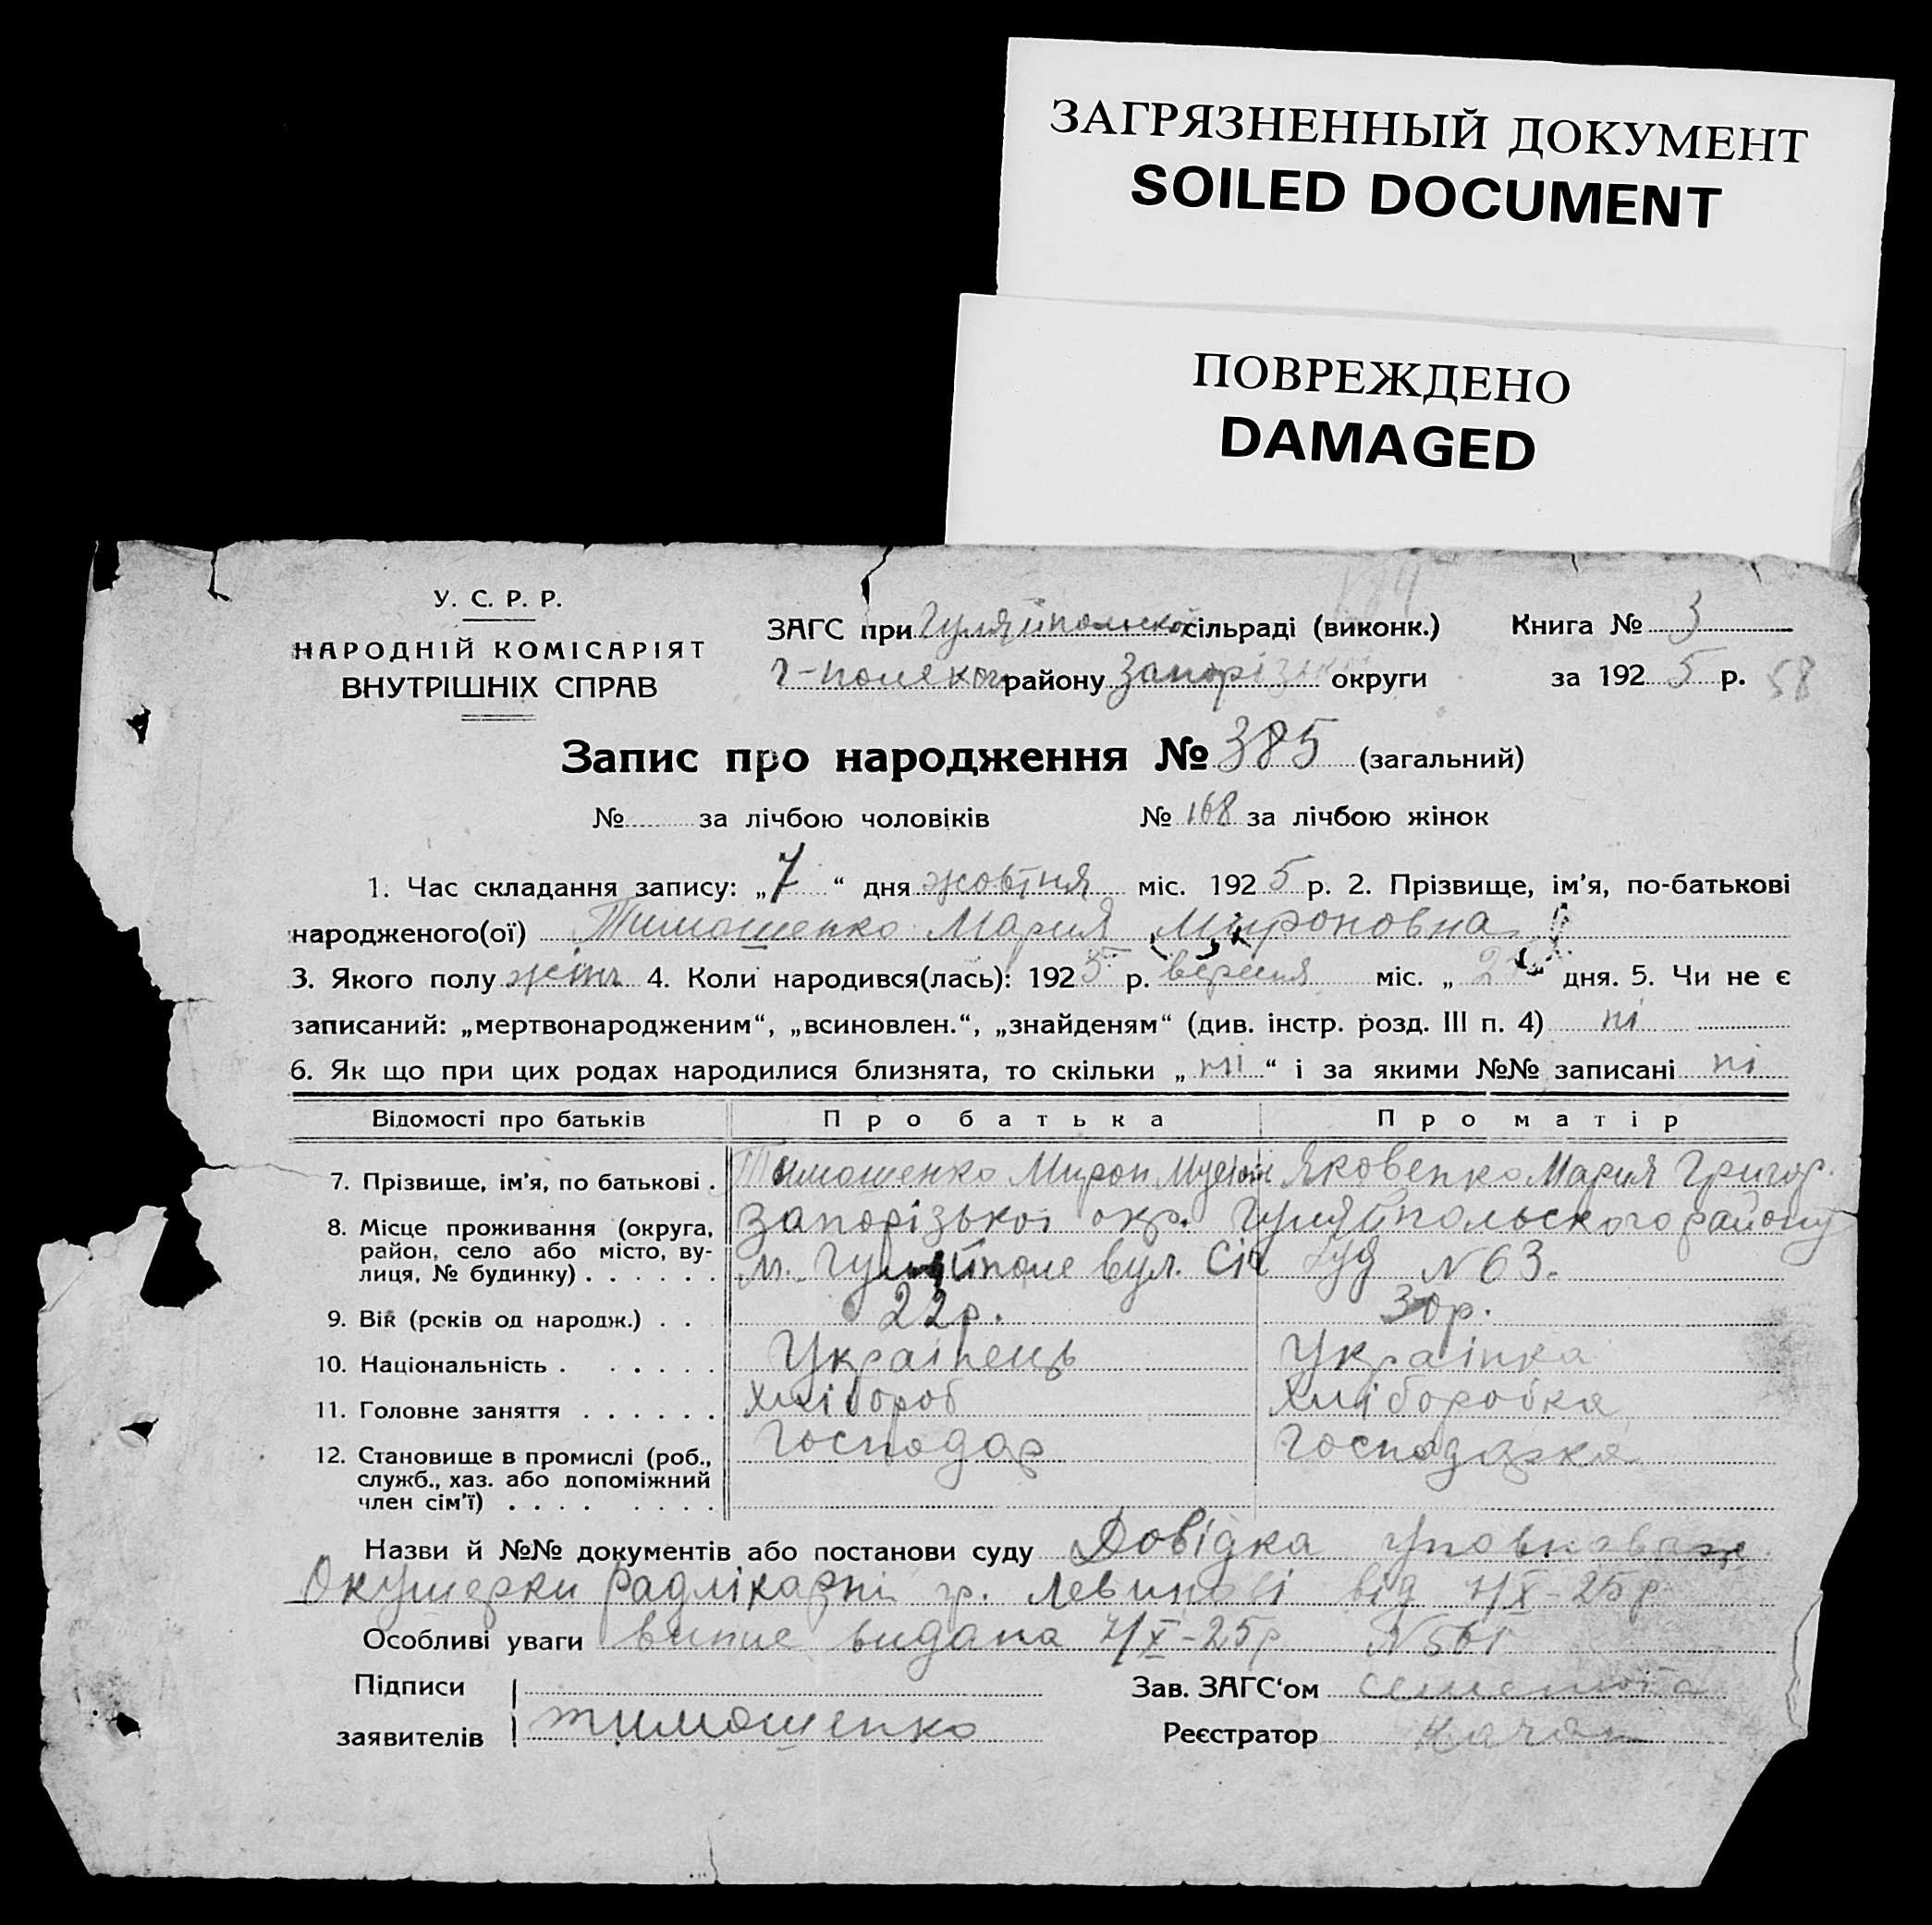 ЗАГРЯЗНЕННЫЙ ДОКУМЕНТ
SOILED DOCUMENT
ПОВРЕЖДЕНО
DAMAGED
У. С. Р. Р.
НАРОДНІЙ КОМІСАРІЯТ
ВНУТРІШНІХ СПРАВ
ЗАГС при Гуляйпольской сільраді (виконк.)
Книга № 3
Г-польского району Запорізької округи
за 1925 р. 58
Запис про народження № 385 (загальний)
№ за лічбою чоловіків № 168 за лічбою жінок
1. Час складання запису: „7“ дня жовтня міс. 1925 р. 2. Прізвище, ім’я, по-батькові
народженого(ої) Тимошенко Мария Мироновна
3. Якого полу жіноч 4. Коли народився(лась): 1925 р. вересня міс. „ дня. 5. Чи не є
записаний: „мертвонародженим“, „всиновлен.“, „знайденям“ (див. інстр. розд. III п. 4) ні
6. Як що при цих родах народилися близнята, то скільки „ні“ і за якими №№ записані ні
Відомості про батьків Про батька Про матір
7. Прізвище, ім’я, по батькові . Тимошенко Мирон Яковенко Мария Григор.
8. Місце проживання (округа, Запорізької окр. Гуляйпольского району
район, село або місто, ву-
лиця, № будинку) . . . . . . м. Гуляйполе вул. N 63.
9. Вік (років од народж.) . . 22р. 30р.
10. Національність . . . . . Українець Українка
11. Головне заняття . . . . . . Хлібороб Хлiборобка
12. Становище в промислі (роб., Господар Господарка
служб., хаз. або допоміжний
член сім’ї) . . . . . . . .
Назви й №№ документів або постанови суду Довідка уповноваж.
Окушерки радлікарні гр. від 7/X-25р
Особливі уваги випис видана 7/X-25р N 561
Підписи
заявителів Тимошенко
Зав. ЗАГС‘ом Семенюта
Реєстратор Качан